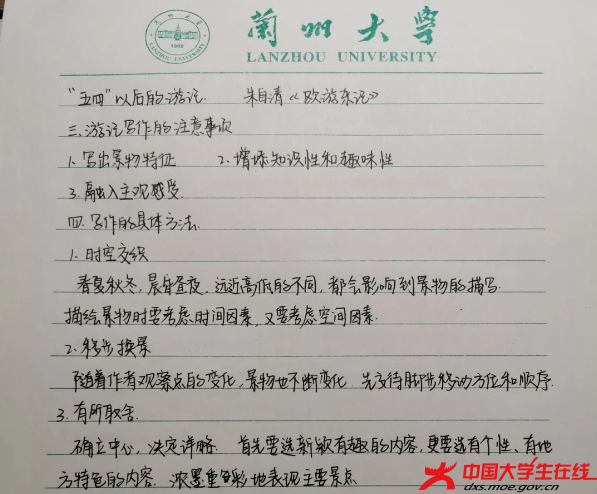 蘭州大學
LANZHOU UNIVERSITY
1909
"五四"以后的游记. 朱自清《欧游杂记》
三.游记写作的注意事项
1.写出景物特征 2.增添知识性和趣味性
3.融入主观感受.
四.写作的具体方法.
1.时空交织
春夏秋冬,晨昏昼夜,远近高低的不同,都会影响到景物的描写.
描绘景物时要考虑时间因素,又要考虑空间因素.
2.移步换景
随着作者观察点的变化,景物也不断变化.先交待脚步移动方位和顺序.
3.有所取舍.
确立中心,决定详略. 首先要选新颖有趣的内容,更要选有个性、有地
方特色的内容.浓墨重彩地表现主要景点
中国大学生在线
dxs.moe.gov.cn